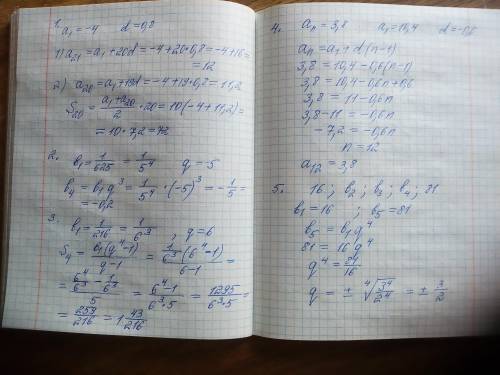 1. a₁ = -4 d = 0,8
1) a₂₁ = a₁ + 20d = -4 + 20·0,8 = -4 + 16 =
= 12
2) a₂₀ = a₁ + 19d = -4 + 19·0,8 = 11,2
S₂₀ = (a₁ + a₂₀)/2 · 20 = 10(-4 + 11,2) =
= 10·7,2 = 72
2. b₁ = 1/625 = 1/5⁴ q = -5
b₄ = b₁q³ = 1/5⁴ · (-5)³ = -1/5 =
= -0,2
3. b₁ = 1/216 = 1/6³, q = 6
S₄ = b₁(q⁴-1)/(q-1) = (1/6³(6⁴-1))/(6-1) =
= (6⁴/6³ - 1/6³)/5 = (6⁴-1)/(6³·5) = 1295/(6³·5) =
= 259/216 = 1 43/216
4. aₙ = 3,8 a₁ = 10,4 d = -0,6
aₙ = a₁ + d(n-1)
3,8 = 10,4 - 0,6(n-1)
3,8 = 10,4 - 0,6n + 0,6
3,8 = 11 - 0,6n
3,8 - 11 = -0,6n
-7,2 = -0,6n
n = 12
a₁₂ = 3,8
5. 16; b₂; b₃; b₄; 81
b₁ = 16; b₅ = 81
b₅ = b₁q⁴
81 = 16q⁴
q⁴ = 81/16
q = ± ⁴√(3⁴/2⁴) = ± 3/2